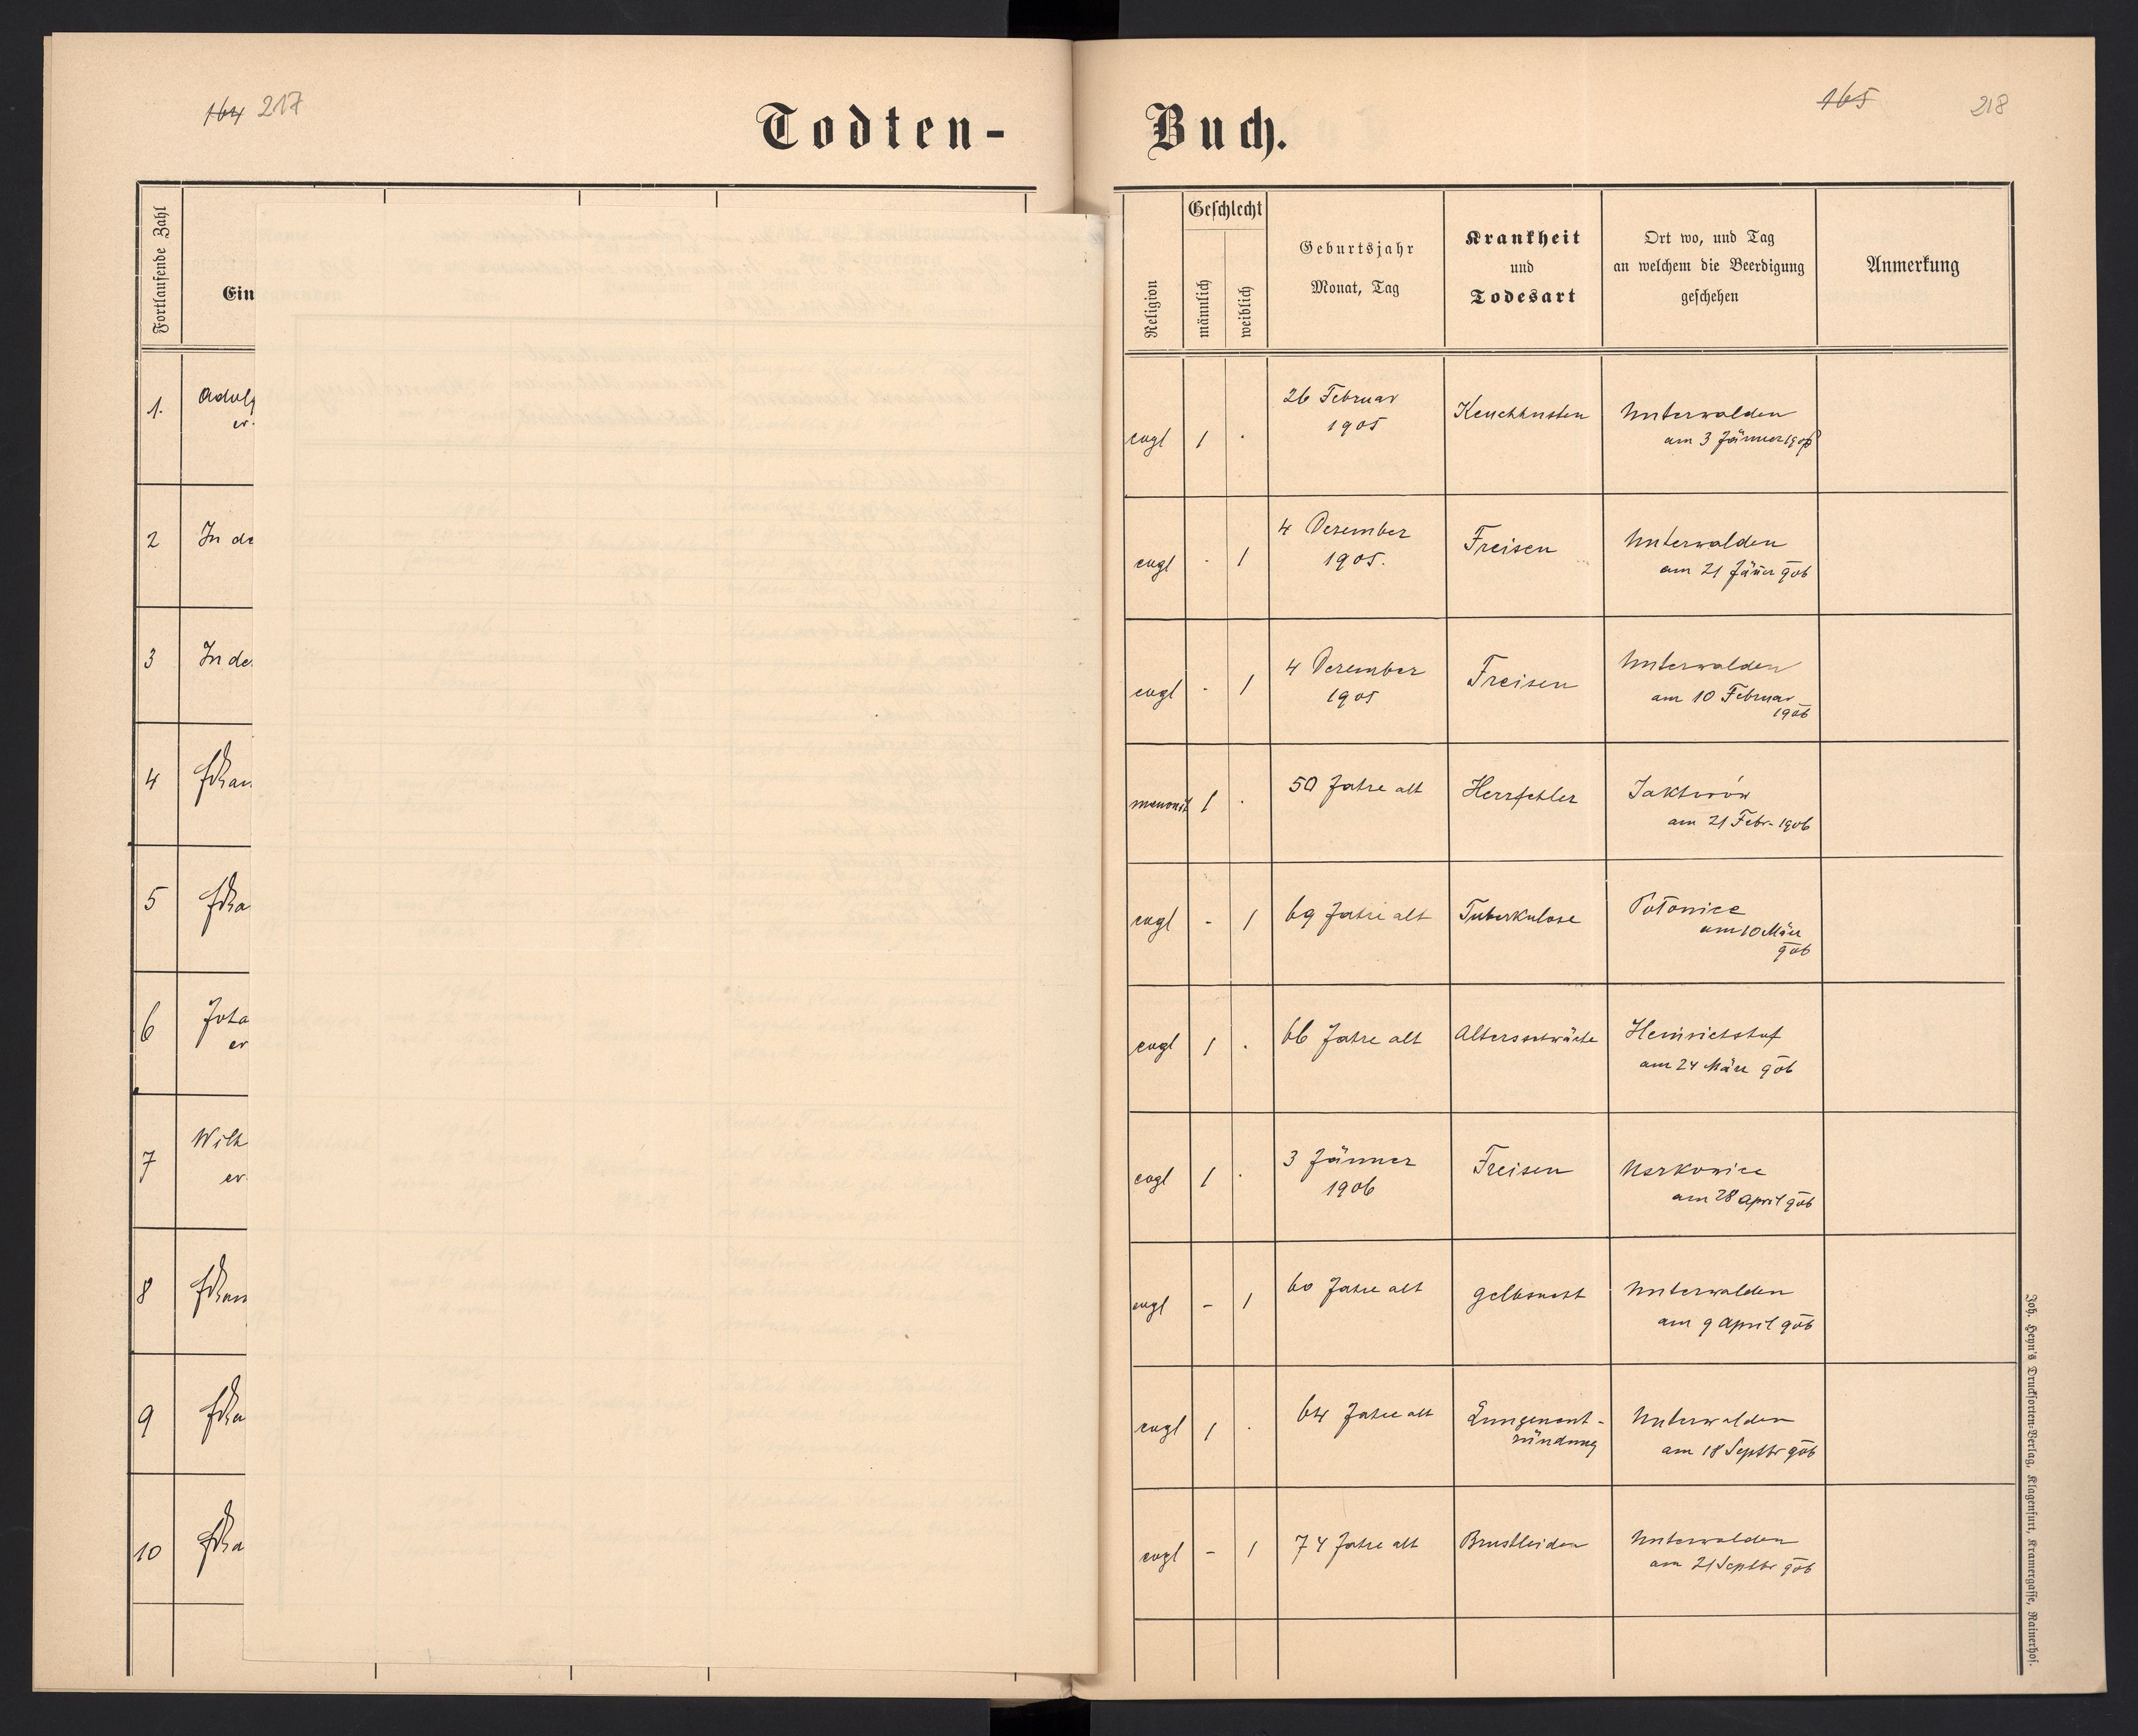 164 217
Todten-
Buch.
165 218
Fortlaufende Zahl
Ein
Religion
Geschlecht
männlich
weiblich
Geburtsjahr
Monat, Tag
Krankheit
und
Todesart
Ort wo, und Tag
an welchem die Beerdigung
geschehen
Anmerkung
1. Adolf
er.
evgl 1 ·
26 Februar
1905
Keuchhusten
Unterwalden
am 3 Jänner 1906
2 In de
evgl · 1
4 Dezember
1905.
Freisen
Unterwalden
am 21 Jäner 906
3 In de
evgl · 1
4 Dezember
1905
Freisen
Unterwalden
am 10 Februar
1906
4
menonit 1 ·
50 Jahre alt
Herzfehler
Jaktorów
am 21 Febr. 1906
5
evgl - 1
69 Jahre alt
Tuberkulose
am 10 März
906
6 Joha
er
evgl 1 ·
66 Jahre alt
Altersschwäche
Heinrichshof
am 24 März 906
7 Wilh
er
evgl 1 ·
3 Jänner
1906
Freisen
am 28 April 906
8
evgl - 1
60 Jahre alt
Gelbsucht
Unterwalden
am 9 April 906
9
evgl 1 ·
64 Jahre alt
Lungenent-
zündung
Unterwalden
am 18 Septbr 906
10
evgl - 1
74 Jahre alt
Brustleiden
Unterwalden
am 21 Septbr 906
Joh. Heyn's Drucksorten-Verlag, Klagenfurt, Kramergasse, Rainerhof.